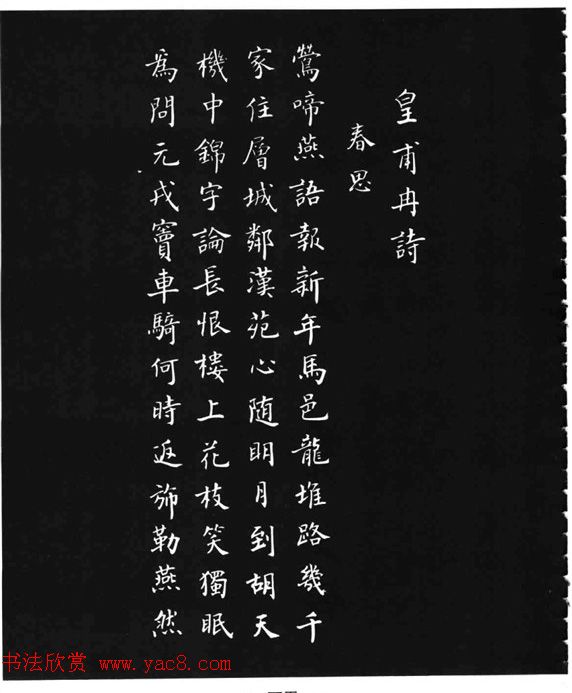 皇甫冉詩
春思
鶯啼燕語報新年馬邑龍堆路幾千
家住層城鄰漢苑心随明月到胡天
機中錦字論長恨樓上花枝笑獨眠
為問元戎竇車騎何時返旆勒燕然
书法欣赏 www.yac8.com